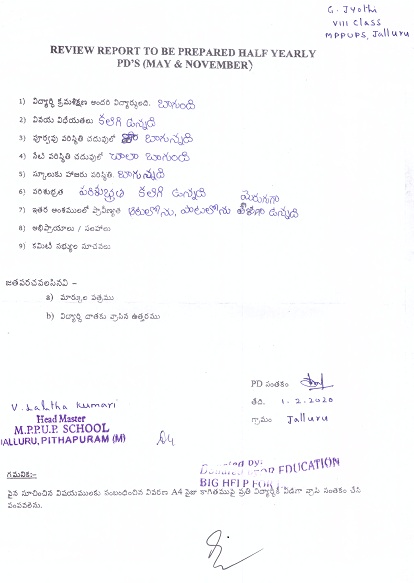 G. Jyothi
VIII Class
MPPUPS, Jalluru
REVIEW REPORT TO BE PREPARED HALF YEARLY
PD'S (MAY & NOVEMBER)
1) విద్యార్థి క్రమశిక్షణ అందరి విద్యార్థులది. బాగుంది
2) వినయ విధేయతలు కలిగి ఉన్నది
3) పూర్వపు పరిస్థితి చదువులో బాగున్నది
4) నేటి పరిస్థితి చదువులో చాలా బాగుంది
5) స్కూలుకు హాజరు పరిస్థితి. బాగున్నది
6) పరిశుభ్రత పరిశుభ్రత కలిగి ఉన్నది
7) ఇతర అంశములలో ప్రావీణ్యత ఆటలోను, పాటలోను మెరుగుగా ఉన్నది
8) అభిప్రాయాలు / సలహాలు
9) కమిటీ సభ్యుల సూచనలు
జతపరచవలసినవి :-
a) మార్కుల పత్రము
b) విద్యార్థి దాతకు వ్రాసిన ఉత్తరము
PD సంతకం
తేది. 1.2.2020
గ్రామం Jalluru
V. Lalitha Kumari
Head Master
M.P.P.U.P. SCHOOL
JALLURU, PITHAPURAM (M)
by:
FOR EDUCATION
BIG HELP FOR
గమనిక:-
పైన సూచించిన విషయములకు సంబంధించిన వివరణ A4 సైజు కాగితముపై ప్రతి విద్యార్థికి విడిగా వ్రాసి సంతకం చేసి
పంపవలెను.